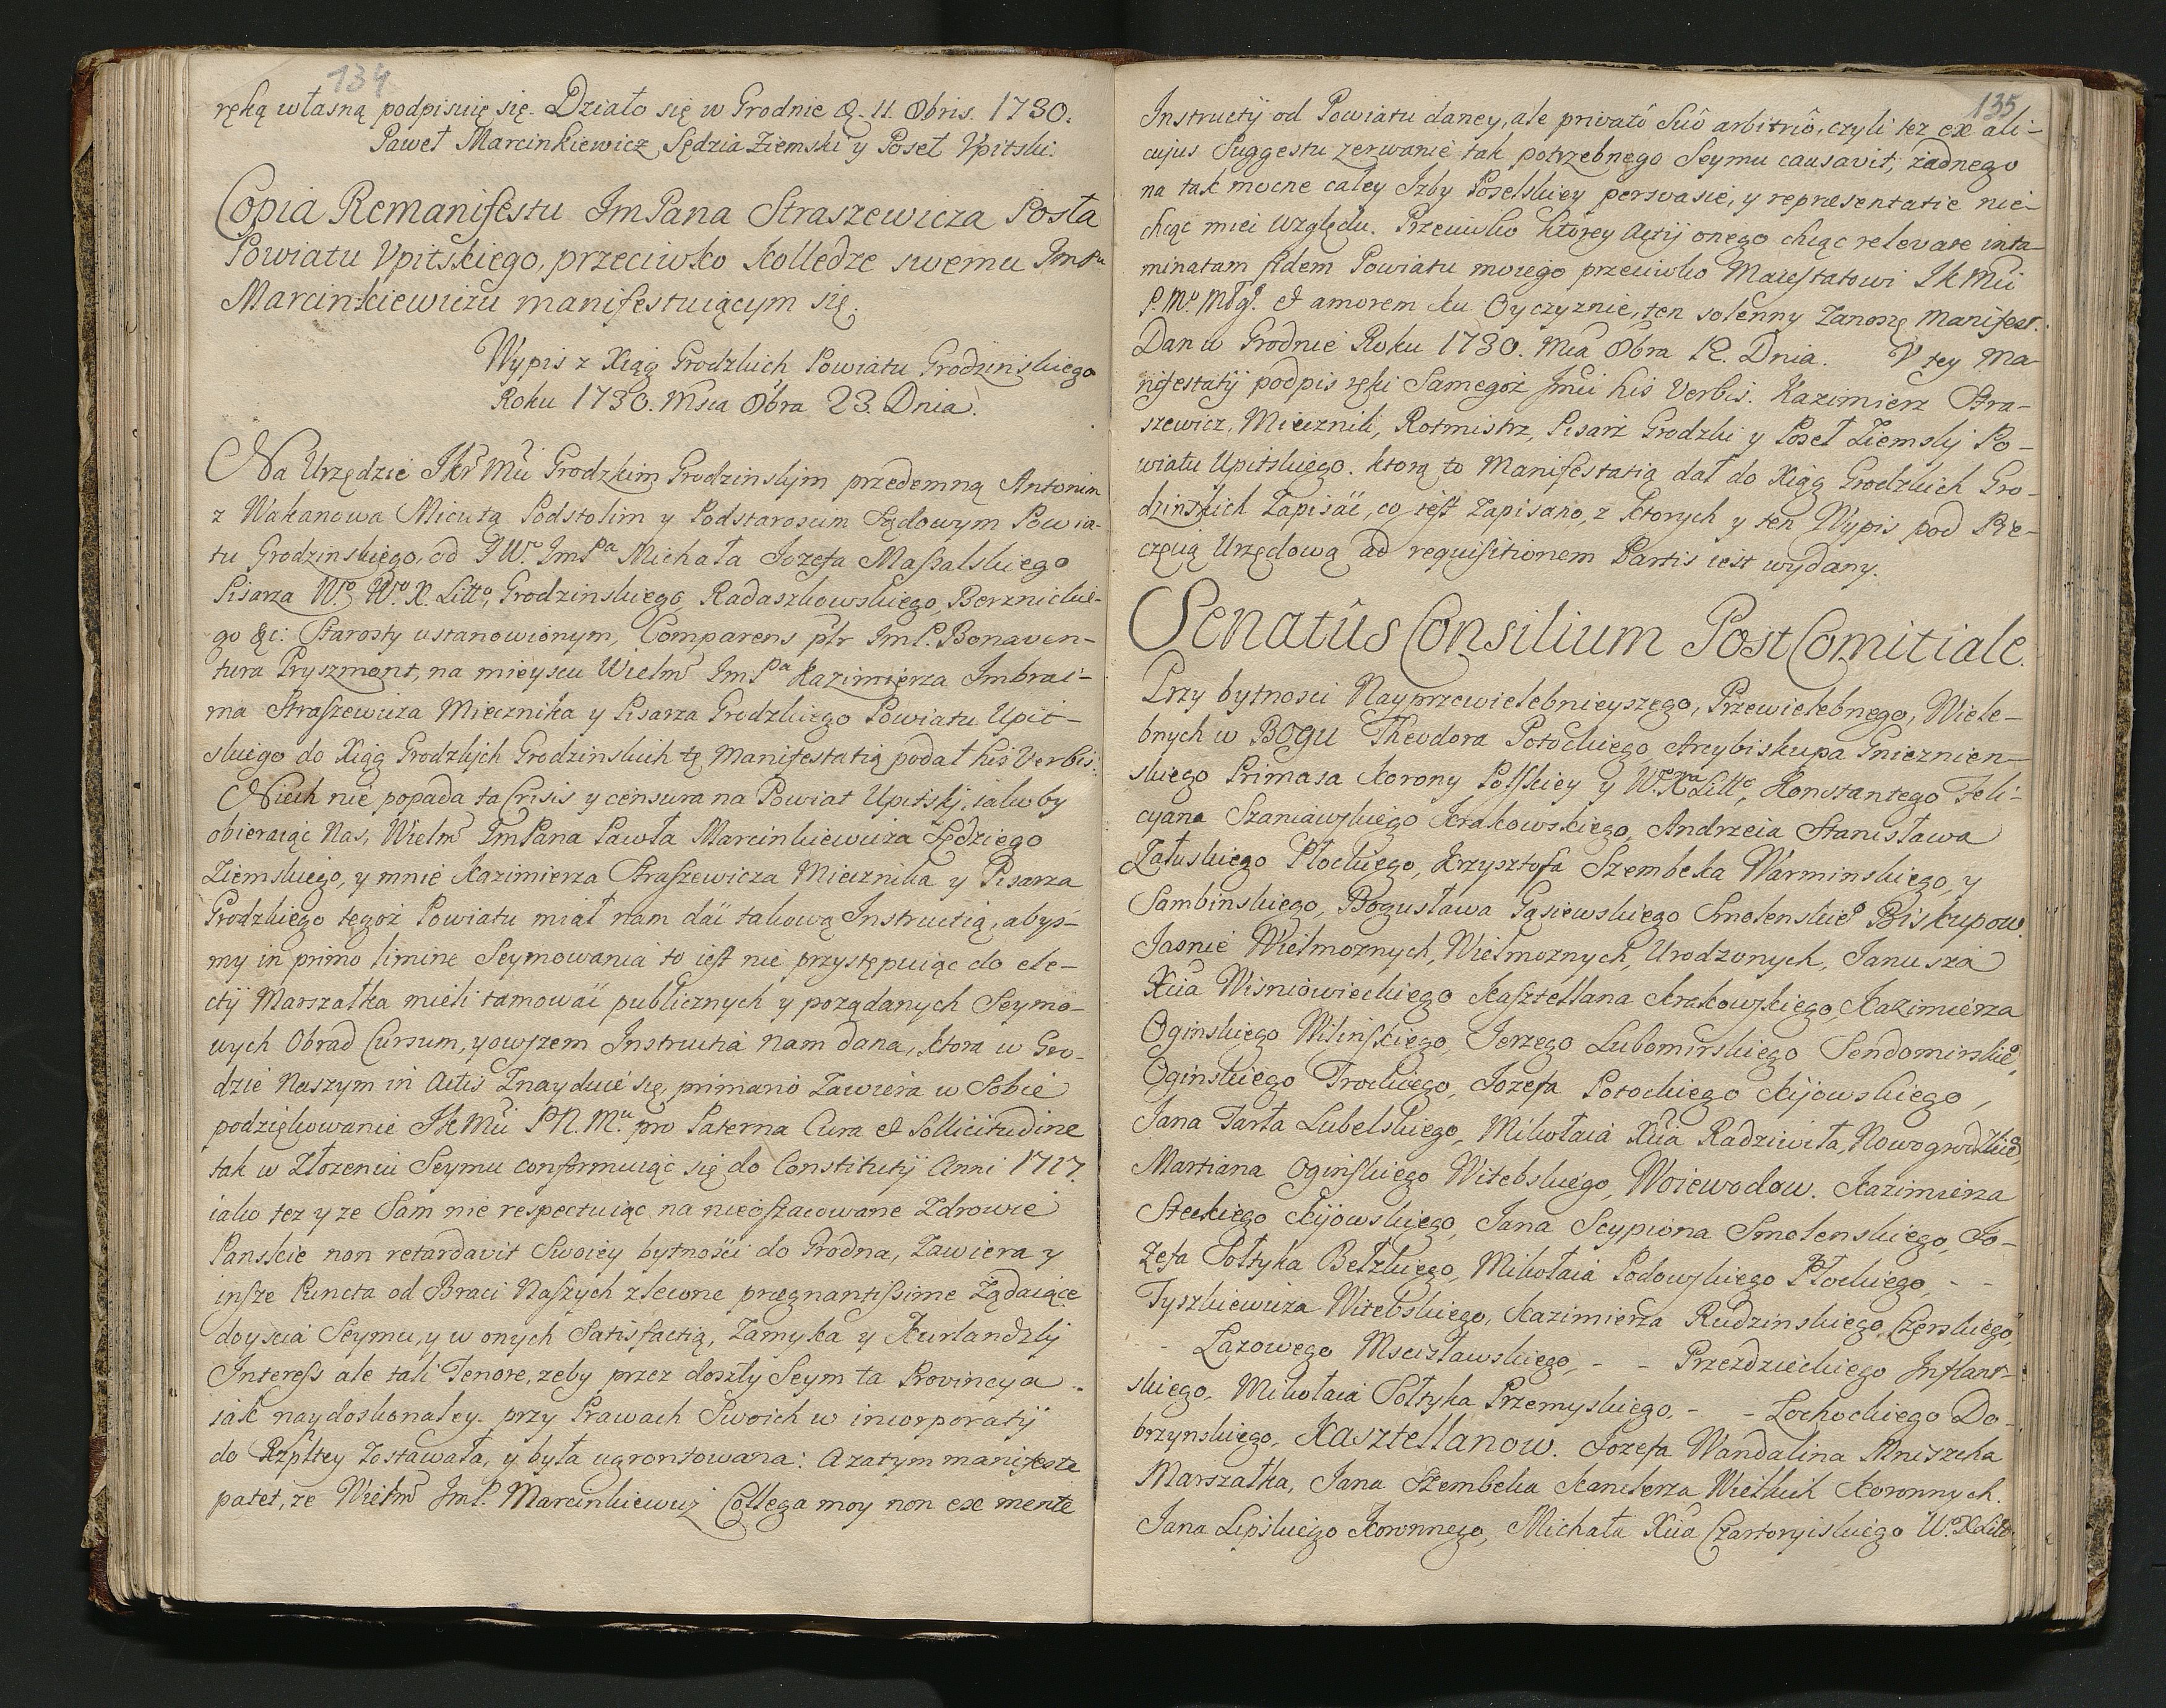 134
ręką własną podpisuię się. Działo się w Grodnie d. 11. 8bris. 1730.
Paweł Marcinkiewicz Sędzia Ziemski y Poseł Vpitski.
Copia Remanifestu ImPana Straszewicza Posła
Powiatu Vpitskiego, przeciwko Kolledze swemu ImPu
Marcinkiewiczu manifestuiącym się.
Wypis z Xiąg Grodzkich Powiatu Grodzinskiego
Roku 1730. Msca 8bra 23. Dnia.
Na Urzędzie JKr Mci Grodzkim Grodzinskim przedemną Antonim
z Wakanowa Micutą Podstolim y Podstaroscim Sądowym Powia-
tu Grodzinskiego, od JWo ImPa Michała Jozefa Massalskiego
Pisarza Wo Wo X. Litto, Grodzinskiego, Radaszkowskiego, Berznickie-
go &c: Starosty ustanowionym, Comparens ptr ImP. Bonawen-
tura Pryszmont, na mieyscu Wielmo ImPa Kazimierza Imbrai-
ma Straszewicza Miecznika y Pisarza Grodzkiego Powiatu Upit-
skiego do Xiąg Grodzkich Grodzinskich tę Manifestatią podał his Verbis:
Niech nie popada ta Crisis y censura na Powiat Upitski, iakoby
obieraiąc Nas, Wielmo ImPana Pawła Marcinkiewicza Sędziego
Ziemskiego, y mnie Kazimierza Straszewicza Miecznika y Pisarza
Grodzkiego tegoż Powiatu miał nam dać takową Instructią, abys-
my in primo limine Seymowania to iest nie przystępuiąc do ele-
ctij Marszałka mieli tamować publicznych y pożądanych Seymo-
wych Obrad Cursum, y owszem Instructia nam dana, ktora w Gro-
dzie Naszym in Actis Znayduie się primario Zawiera w Sobie
podziękowanie JKMci PN. Mu pro Paterna Cura et Sollicitudine
tak w Złożeniu Seymu conformuiąc się do Constitutij Anni 1717.
iako tez y ze Sam nie respectuiąc na nieoszacowane Zdrowie
Panskie non retardavit Swoiey bytności do Grodna, Zawiera y
insze Puncta od Braci Naszych zlecone prægnantissime Ządaiące
doyscia Seymu, y w onych Satisfactią, Zamyka y Kurlandzki
Interess ale tali Tenore, zeby przez doszły Seym ta Provincya
iak naydoskonaley przy Prawach Swoich w incorporatij
do Rzpltey Zostawała, y była ugrontowana: A zatym manifeste
patet, ze Wielmo ImP. Marcinkiewicz Collega moy non ex mente
135
Instructij od Powiatu daney, ale privatô Suô arbitriô, czyli tez ex ali-
cujus Suggestu zerwanie tak potrzebnego Seymu causavit, żadnego
na tak mocne całey Izby Poselskiey perswasie, y repræsentatie nie
chcąc mieć względu. Przeciwko ktorey Actij onego chcąc relevare inta-
minatam fidem Powiatu moiego przeciwko Maiestatowi JKMci
P. Mo Młgo et amorem ku Oyczyznie, ten solenny Zanoszę Manifest.
Dan w Grodnie Roku 1730. Mca 8bra 12. Dnia. V tey Ma-
nifestatij podpis ręki Samegoż Jmci his Verbis. Kazimierz Stra-
szewicz, Miecznik, Rotmistrz, Pisarz Grodzki y Poseł Ziemskj Po-
wiatu Upitskiego. ktorą to Manifestatią dał do Xiąg Grodzkich Gro-
dzinskich Zapisać, co iest Zapisano, z ktorych y ten Wypis pod Pie-
częcią Urzędową ad requisitionem Partis iest wydany.
Senatûs Consilium Post Comitiale.
Przy bytnosci Nayprzewielebnieyszego, Przewielebnego, Wiele-
bnych w BOGU Theodora Potockiego Arcybiskupa Gnieznien-
skiego Primasa Korony Polskiey y W. X. Litto, Konstantego Feli-
cyana Szaniawskiego Krakowskiego, Andrzeia Stanisława
Załuskiego Płockiego, Krzysztofa Szembeka Warminskiego, y
Sambinskiego, Bogusława Gąsiewskiego Smolenskieo Biskupow.
Jasnie Wielmoznych, Wielmoznych, Urodzonych, Janusza
Xcia Wisniowieckiego Kasztellana Krakowskiego, Kazimierza
Oginskiego Wilinskiego, Jerzego Lubomirskiego Sendomirskieo,
Oginskiego Trockiego, Jozefa Potockiego Kijowskiego,
Jana Tarła Lubelskiego, Mikołaia Xcia Radziwiła, Nowogrodzkieo,
Martiana Oginskiego Witebskiego, Woiewodow. Kazimierza
Steckiego Kijowskiego, Jana Scypiona Smolenskiego, Jo-
zefa Sołtyka Bełzkiego, Mikołaia Podowskiego Płockiego, - -
Tyszkiewicza Witebskiego, Kazimierza Rudzinskiego Czerskiego,
- Łazowego Mscisławskiego, - - Przezdzieckiego Inflant-
skiego, Mikołaia Sołtyka Przemyskiego, - - Łochockiego Do-
brzynskiego, Kasztellanow. Jozefa Wandalina Mniszcha
Marszałka, Jana Szembeka Kanclerza Wielkich Koronnych.
Jana Lipskiego Koronnego, Michała Xcia Czartoryiskiego W. X. Litto,